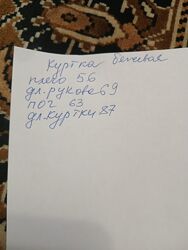 куртка бежевая
плечо 56
дл. рукова 69
пог 63
дл. куртки 87